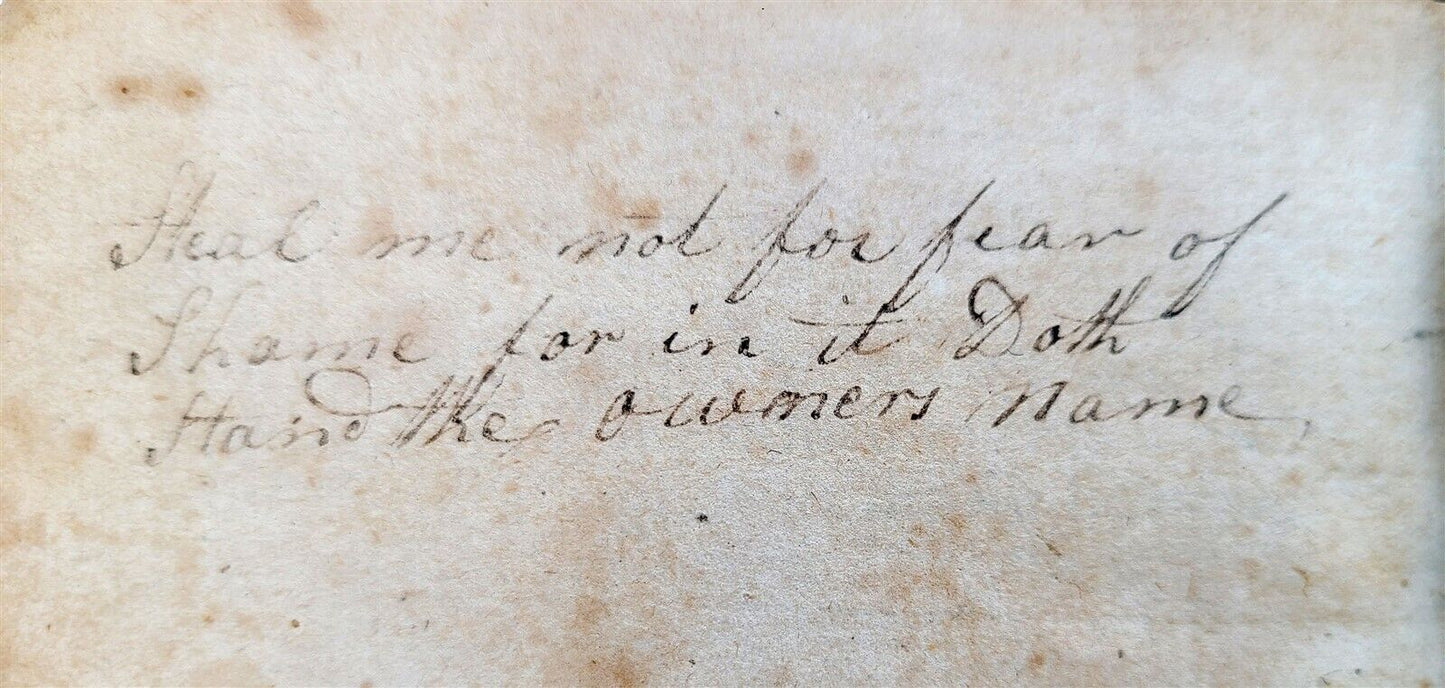 Steal me not for fear of
Shame for in it Doth
Stand the owners Name,